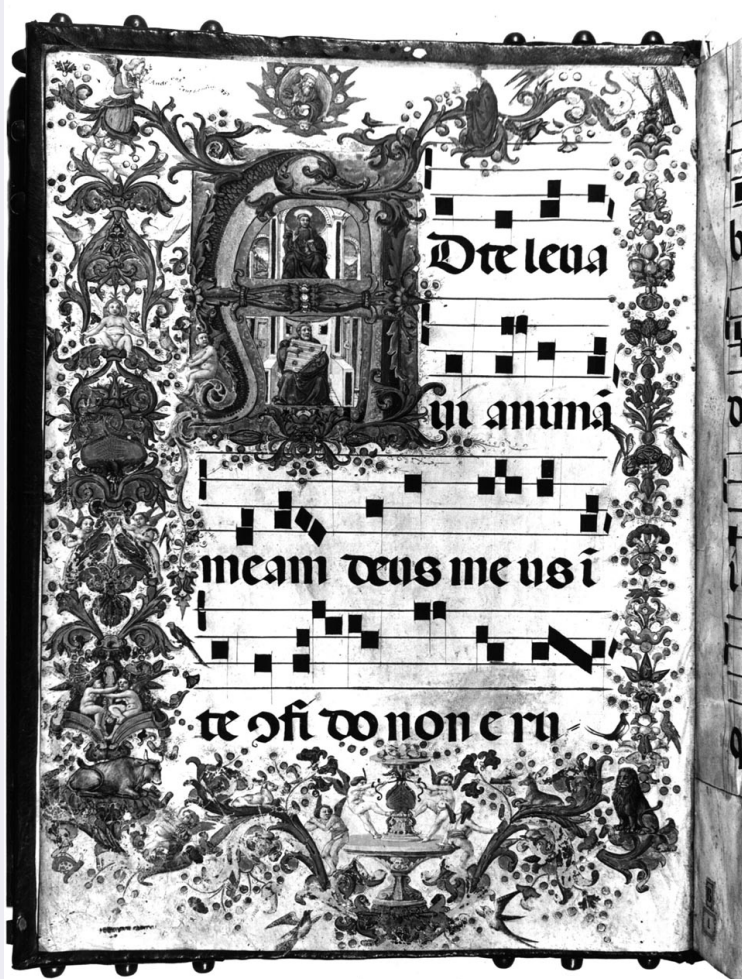 AD te leva
vi animā
meam deus me us ī
te ꝯfi do non e ru